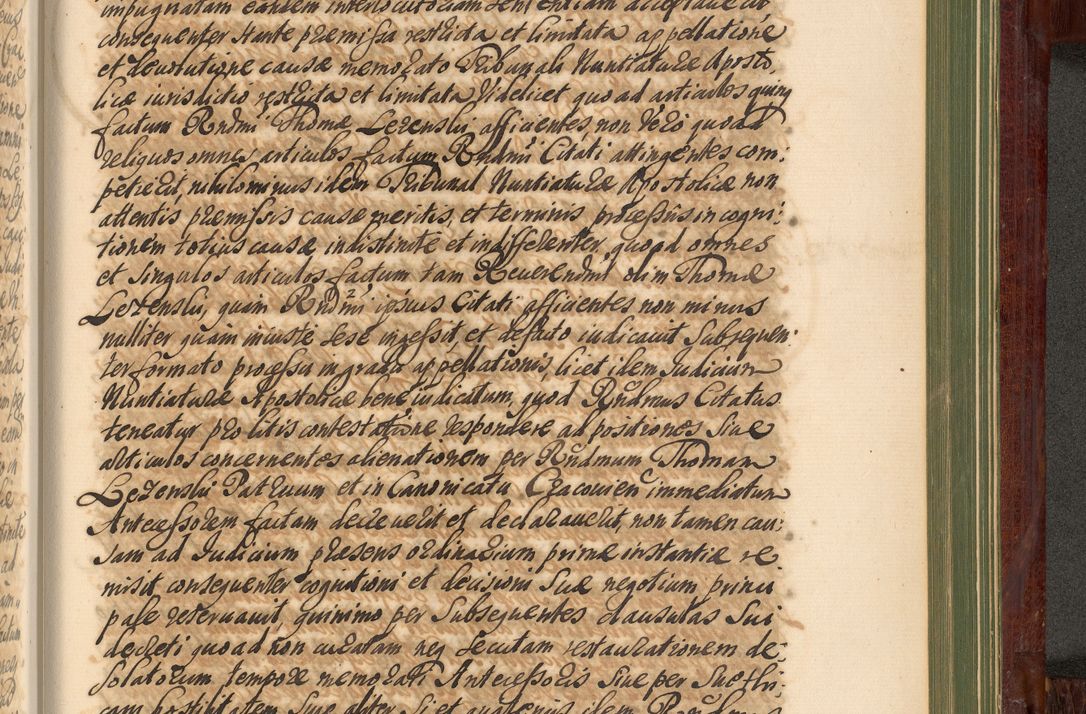 impugnatam eandem interlocutoriam sententiam acceptaverit
consequenter stante præmissa restricta et limitata appellatione
et devolutione causæ memorato Tribunali Nuntiaturæ Aposto,
licæ iurisdictio restricta et limitata Videlicet quo ad articulos quinq
factum Rndmi Thomæ Lezenslii afficientes, non vero quoad
reliquos omnes, articulos factum Rndmi Citati attingentes com:
peteret, nihilominus idem Tribunal Nuntiaturæ Apostolicæ non
attentis præmissis causæ meritis, et terminis processus in cogni:
tionem totius causæ indistincte et indifferenter, quoad omnes
et Singulos articulos factum tam Reuerendmi olim Thomæ
Lezenslii, quam Rndmi ipsius Citati afficientes non minus
nulliter quam iniuste sese ingessit, et defacto iudicauit Subsequen:
ter formato processu in gradu appellationis, licet idem Iudicium
Nuntiaturæ Apostolicæ bene iudicatum, quod Rndmus Citatus
teneatur pro litis contestatione respondere ad positiones Siue
articulos concernentes alienationem per Rndmum Thomam
Lezenslii Patruum et in Canonicatu Cracouien immediatum
Antecessorem factam decreuerit et declarauerit, non tamen cau:
sam ad Iudicium præsens ordinarium primæ instantiæ re
misit consequenter cognitioni et decisioni Suæ negotium princi
pale reseruauit, quinimo per Subsequentes clausulas Sui
decreti quoad non curatam neq secutam restaurationem de
Solatorum tempore memorati Antecessoris Siue per Suethi:
cam hostilitatem Siue aliter Si et quatenus idem Rndmus